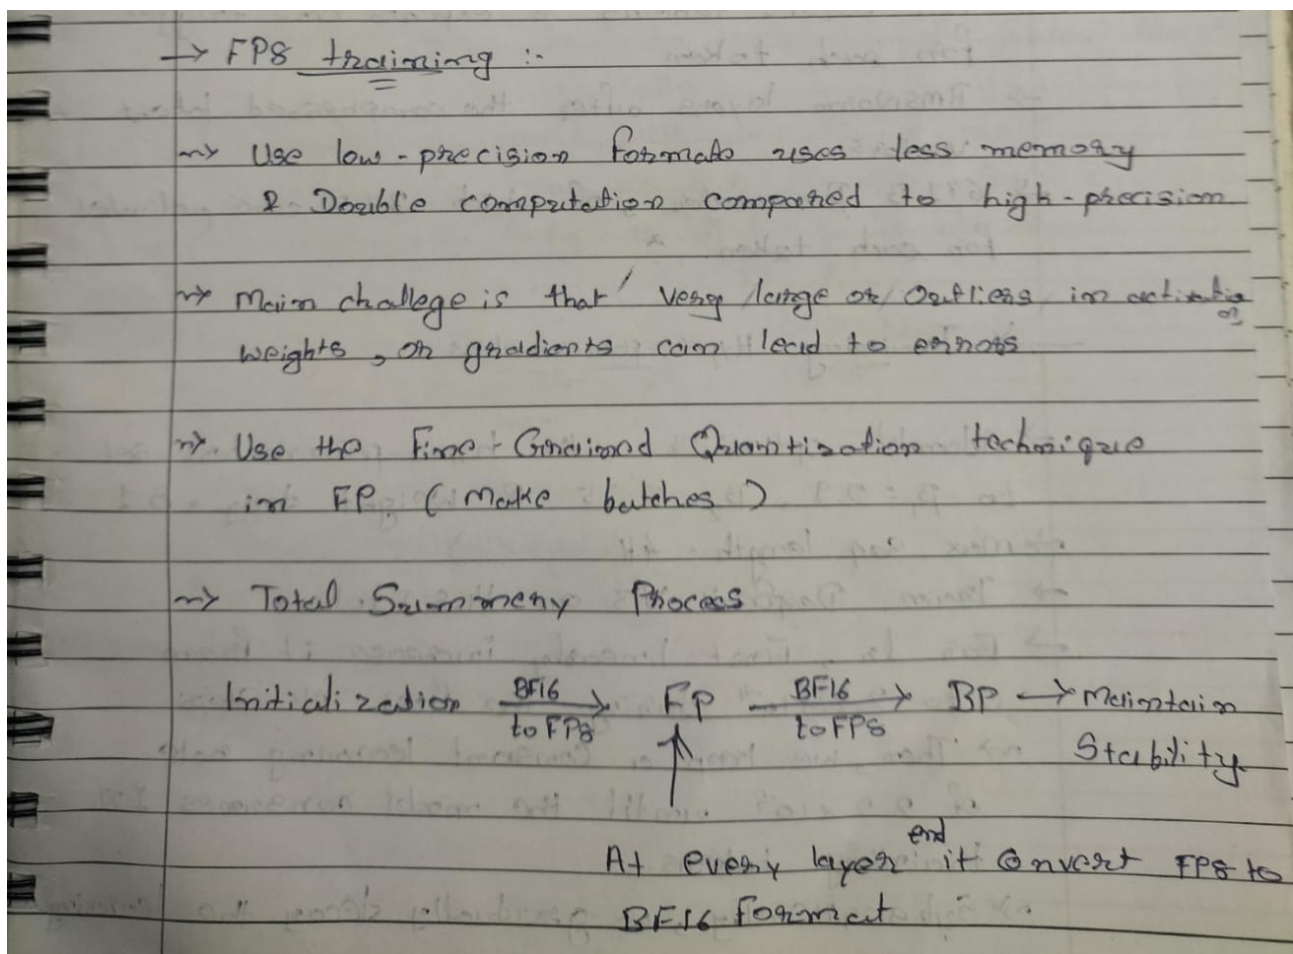 → FP8 training :-
~> Use low-precision formats uses less memory
& Double computation compared to high-precision
~> Main challege is that very large or Outliers in activation
weights, or gradients can lead to errors
~> Use the Fine-Grained Quantization technique
in FP. (Make batches)
~> Total Summery Process
Initialization BF16 to FP8 → FP BF16 to FP8 → BP → Maintain
Stability
At every layer end it Convert FP8 to
BF16 Format